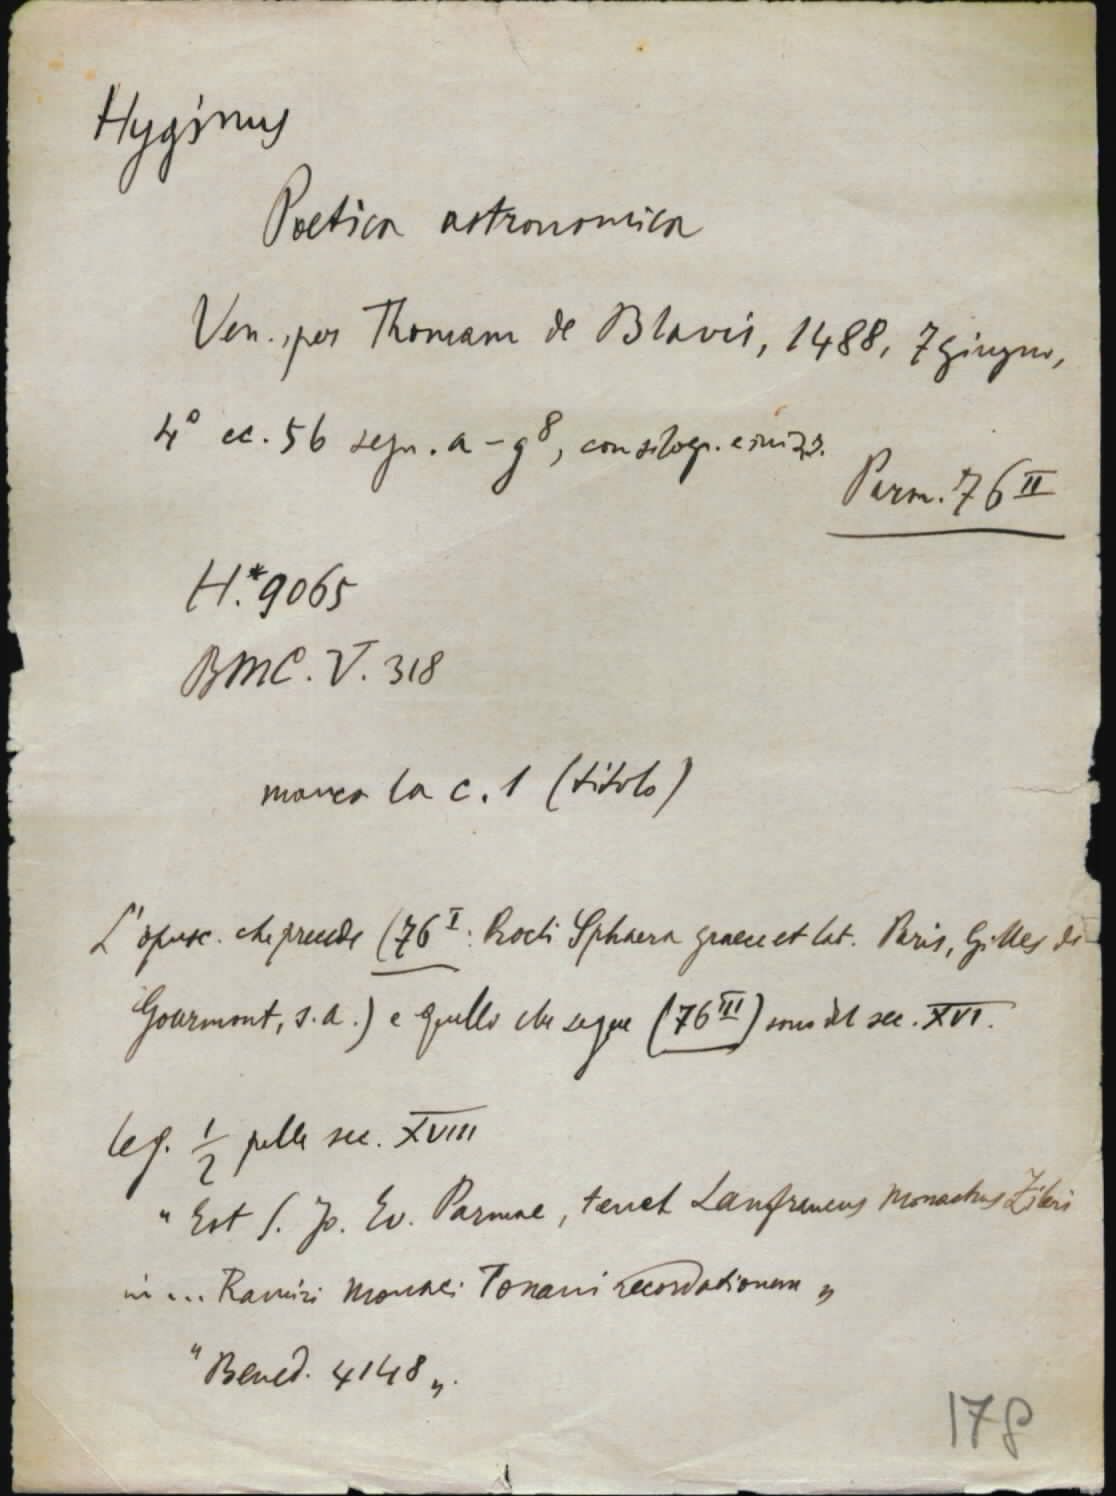 Hyginus
Poetica astronomica
Ven., per Thomam de Blavis, 1488, 7 giugno,
4° cc. 56 segn. a-g⁸, con silogr. e inizz.
Parm. 76 II
H.*9065
BMC. V. 318
manca la c. 1 (titolo)
L'opusc. che precede (76 I: Procli Sphaera graece et lat. Paris, Gilles de
Gourmont, s.a.) e quello che segue (76 III) sono del sec. XVI.
leg. 1/2 pelle sec. XVIII
"Est S. Jo. Ev. Parmae, tenet Lanfrancus Monachus
in ... Ramiri Monaci Tonani recordationem"
"Bened. 4148".
178